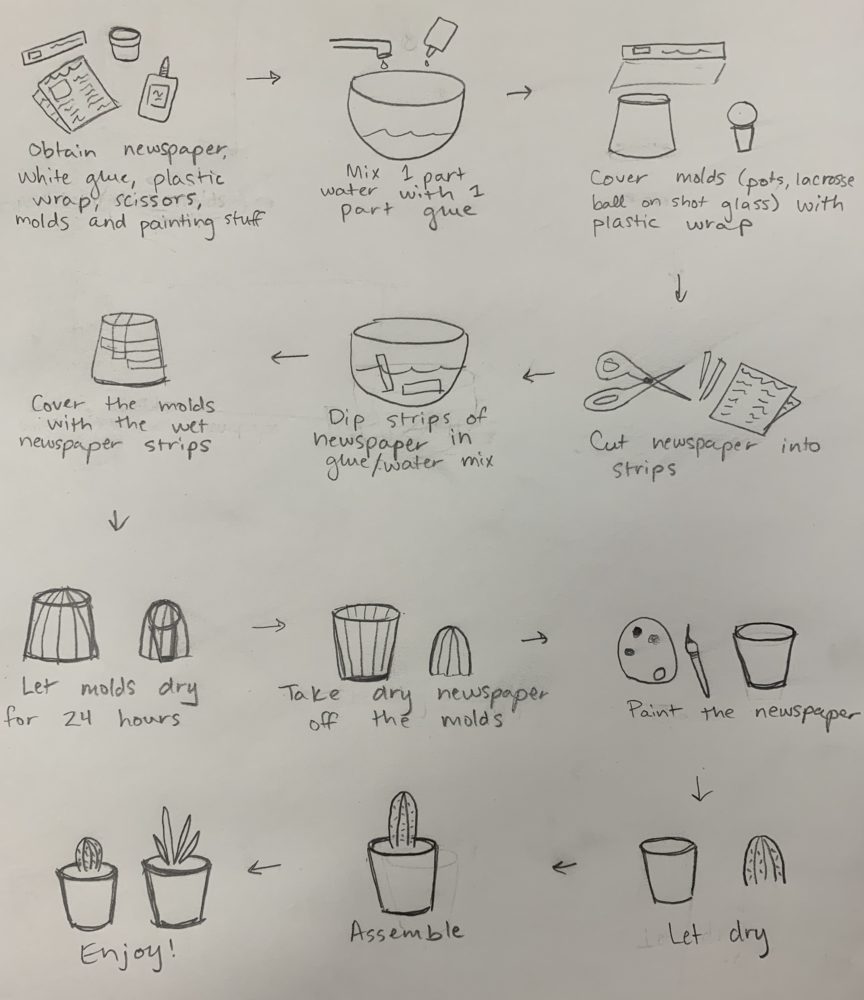 Obtain newspaper,
white glue, plastic
wrap, scissors,
molds and painting stuff
Mix 1 part
water with 1
part glue
Cover molds (pots, lacrosse
ball on shot glass) with
plastic wrap
Cut newspaper into
strips
Dip strips of
newspaper in
glue/water mix
Cover the molds
with the wet
newspaper strips
Let molds dry
for 24 hours
Take dry newspaper
off the molds
Paint the newspaper
Let dry
Assemble
Enjoy!